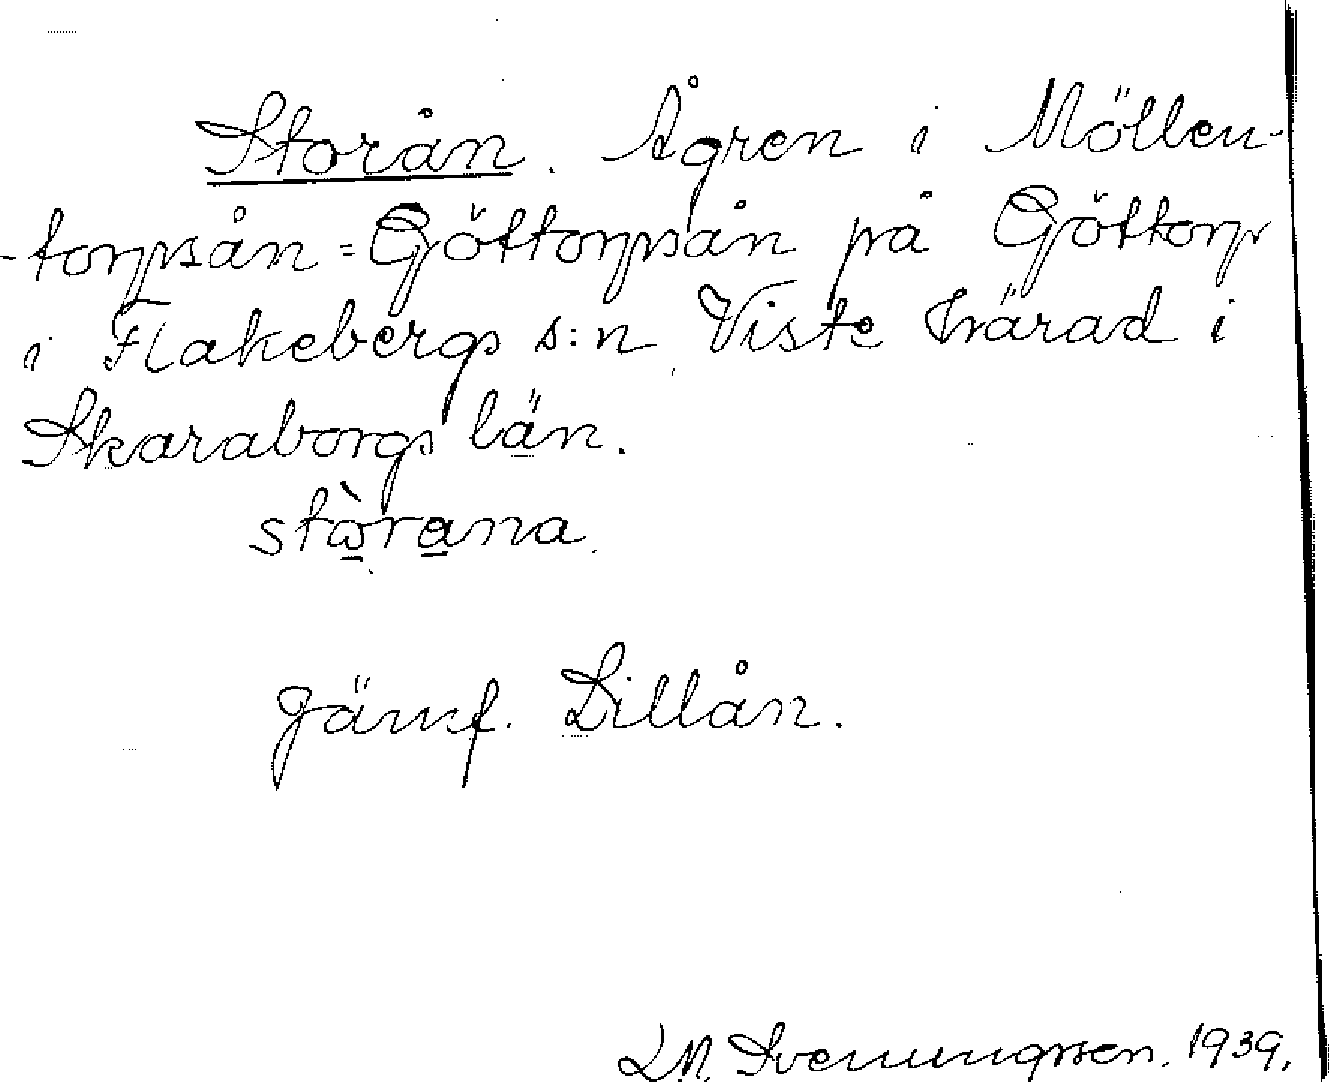 Storån. Ågren i Möllen-
-torpsån = Göttorpsån på Göttorp
i Flakebergs s:n Viste härad i
Skaraborgs län.
stòrana.
Jämf. Lillån.
L M. Svenungsson. 1939.